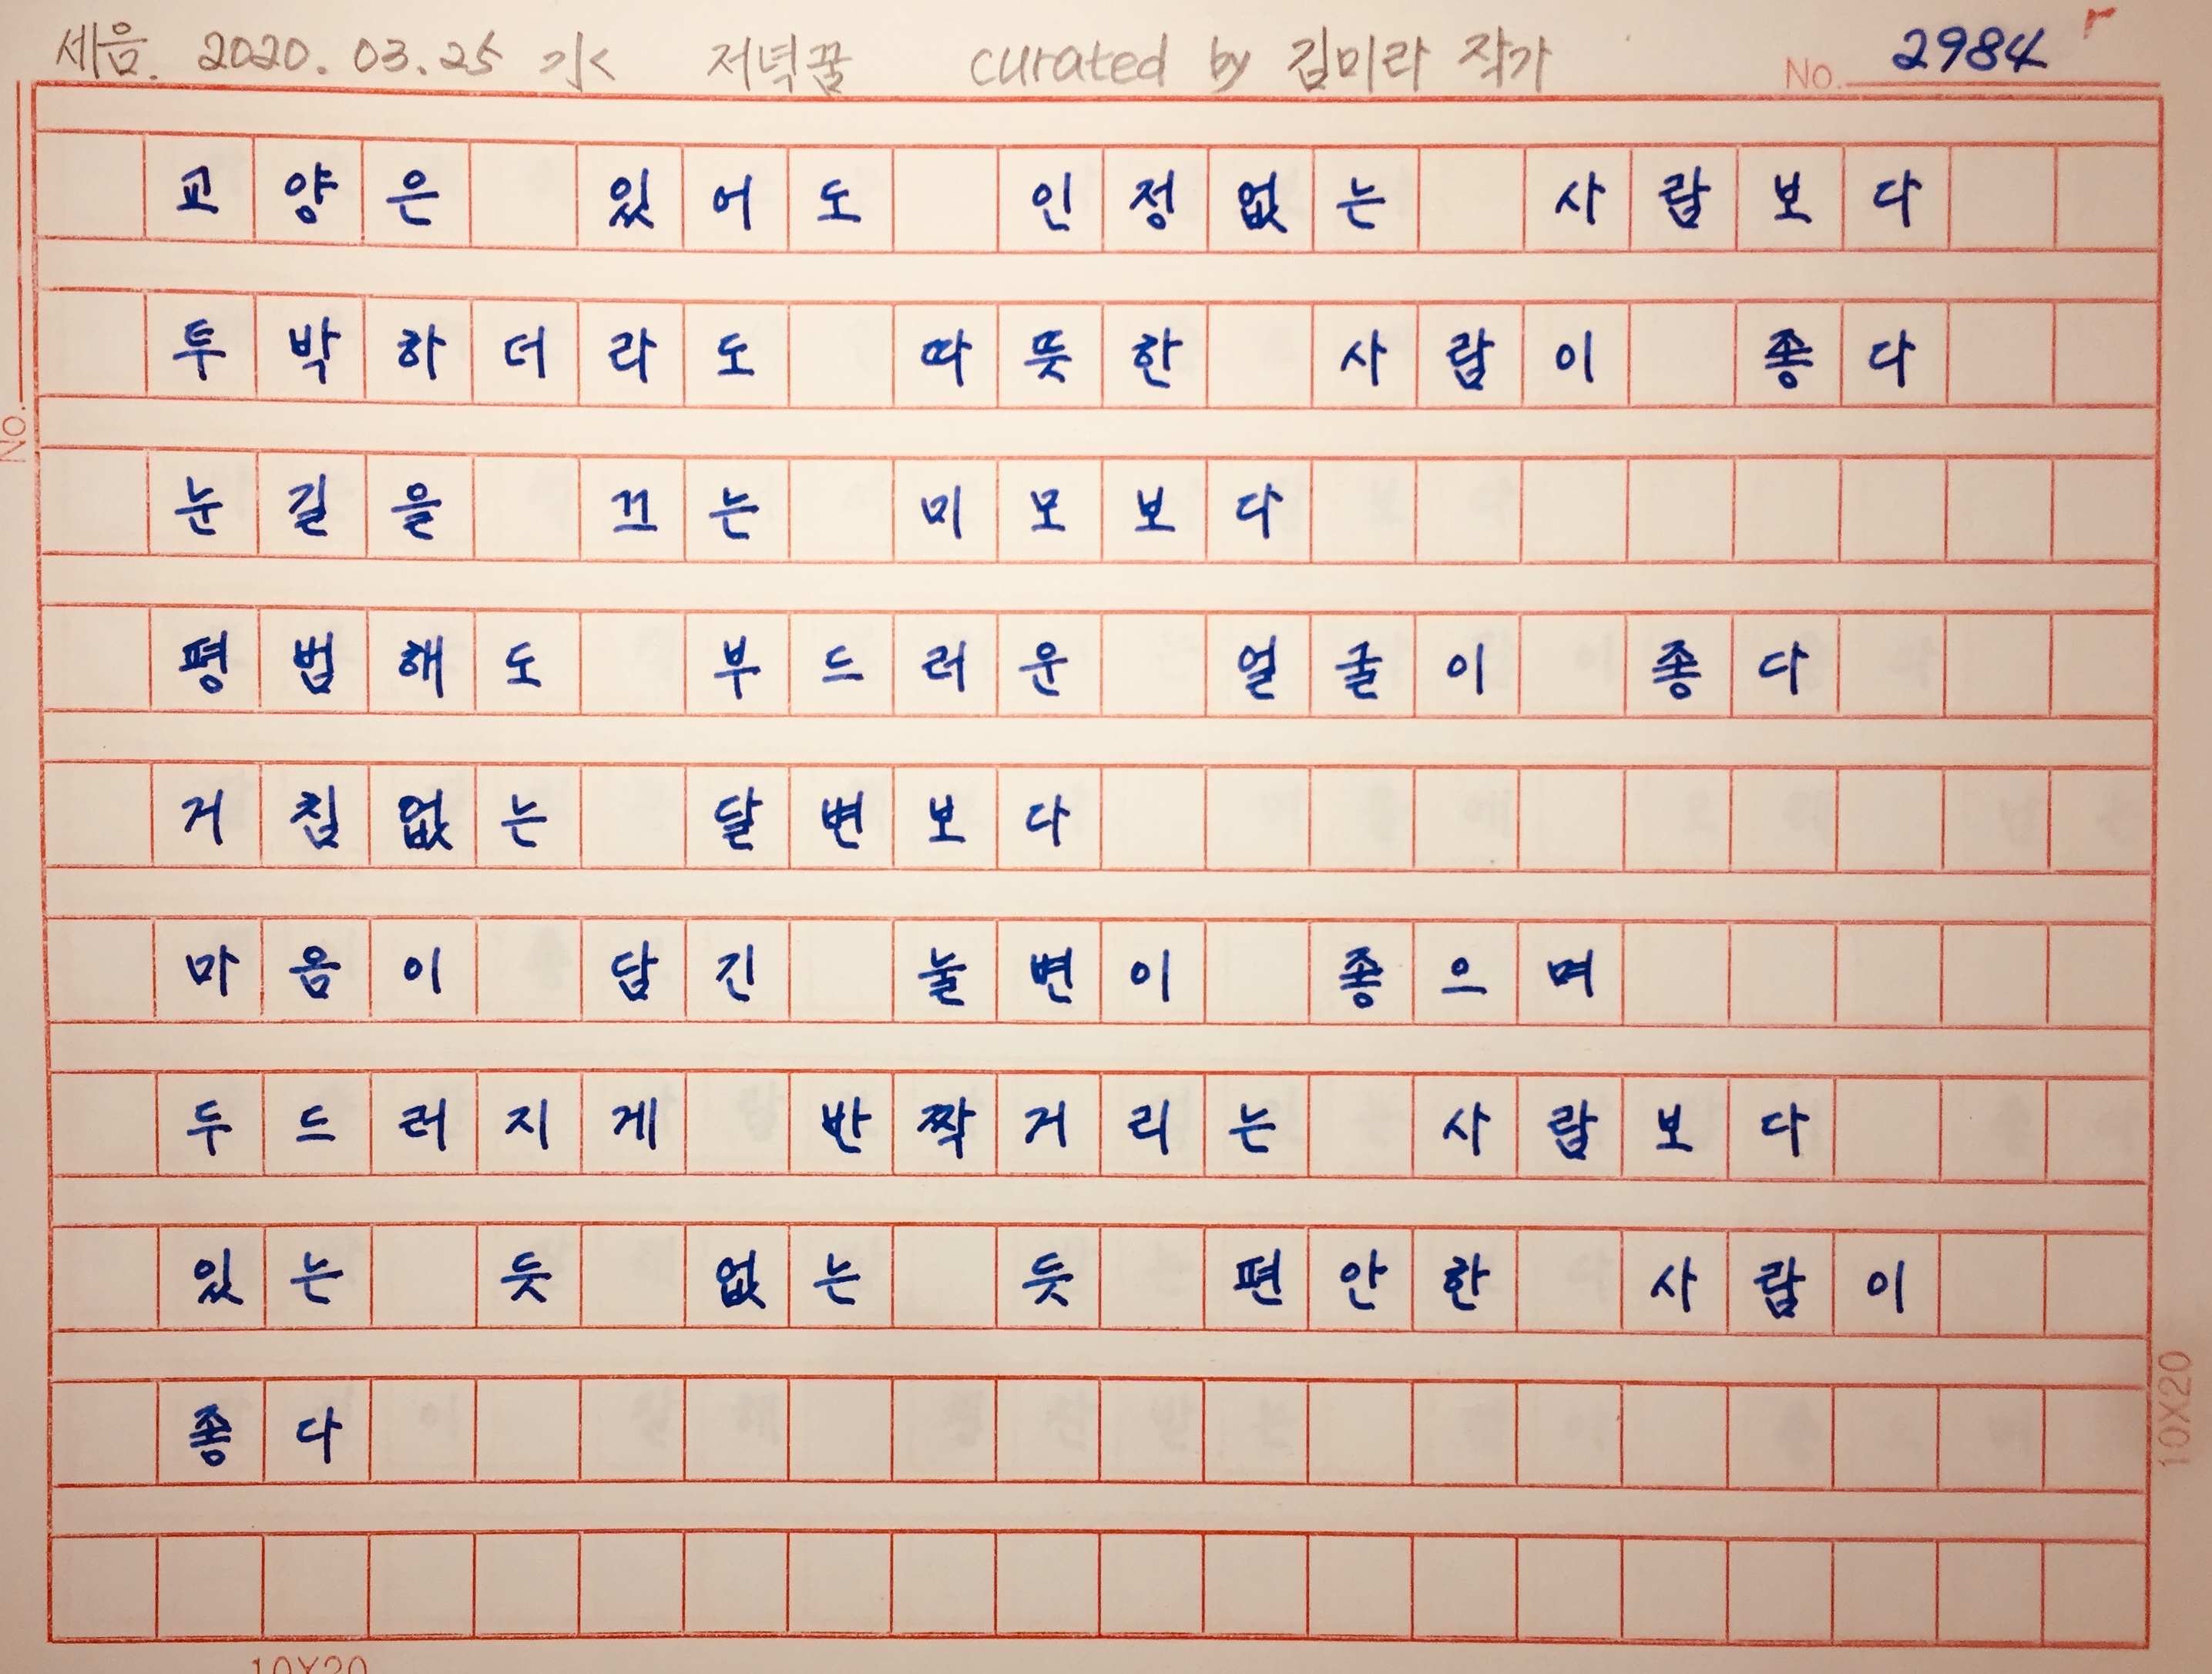 세음. 2020. 03. 25 저녁꿀 curated by 김미라 작가
No. 2984
교양은 있어도 인정없는 사람보다
투박하더라도 따뜻한 사람이 좋다
눈길을 끄는 미모보다
평범해도 부드러운 얼굴이 좋다
거침없는 달변보다
마음이 담긴 눌변이 좋으며
두드러지게 반짝거리는 사람보다
있는 듯 없는 듯 편안한 사람이
좋다
No.
10X20
10X20